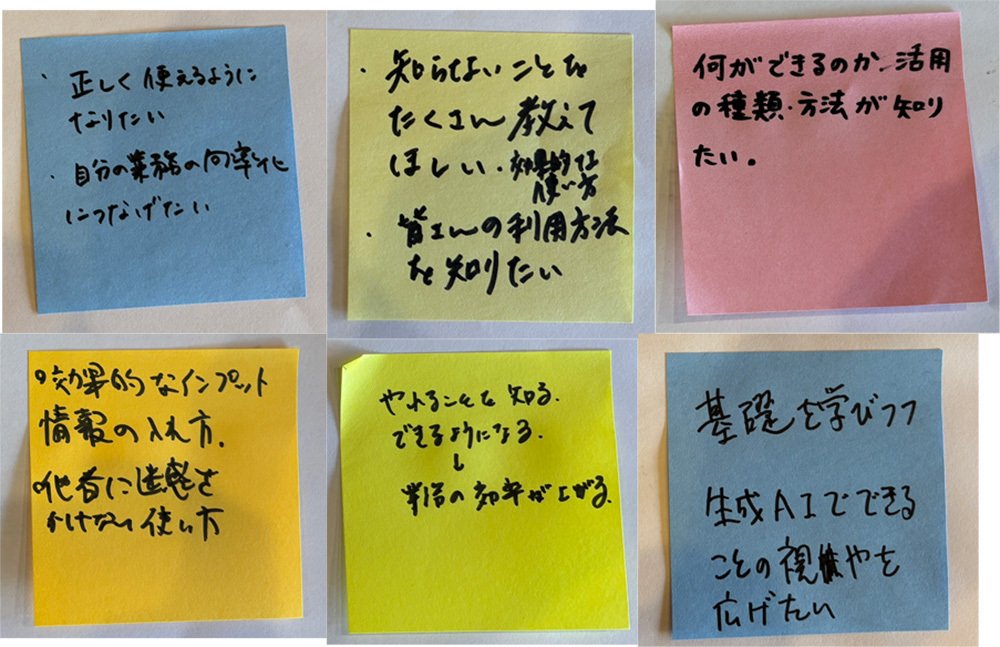 ・正しく使えるように
なりたい
・自分の業務の向率化
につなげたい
・知らないことを
たくさん教えて
ほしい・効果的な
使い方
・皆さんの利用方法
を知りたい
何ができるのか、活用
の種類・方法が知り
たい。
○効果的なインプット
情報の入れ方。
○他者に迷惑を
かけない使い方
やれることを知る。
できるようになる。
↓
業務の効率が上がる。
基礎を学びつつ
生成AIでできる
ことの視野を
広げたい